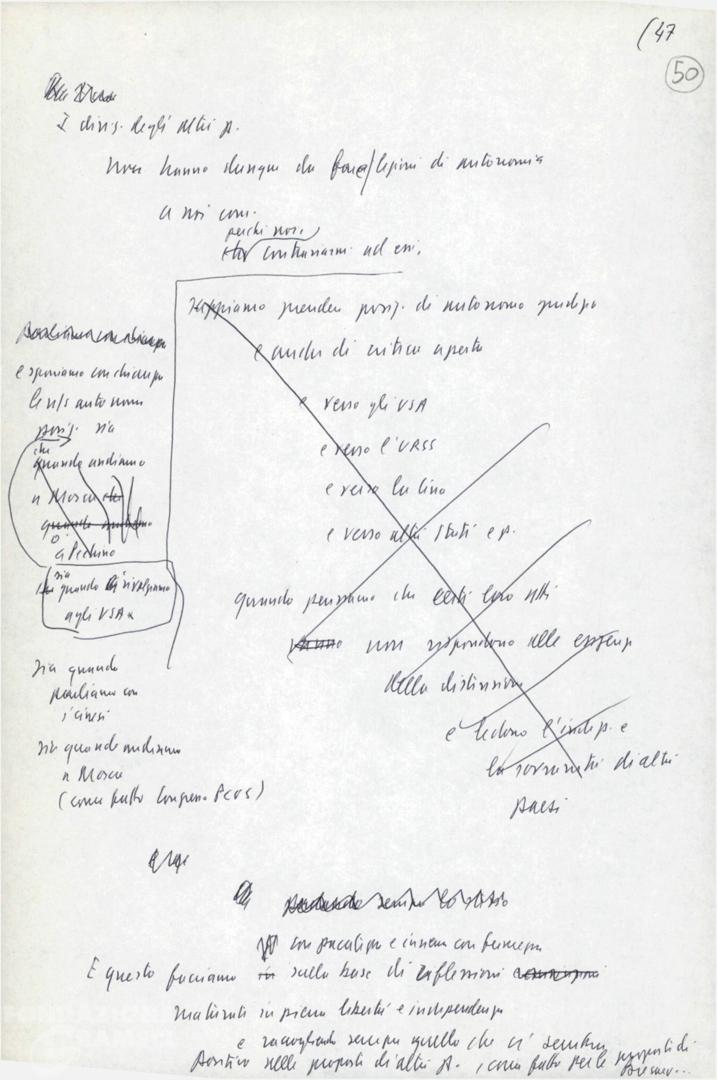 (47
50
I dirig. degli altri p.
non hanno dunque da farci lezioni di autonomia
a noi com.
perché noi
contrariarmi ad essi.
Sappiamo prender posiz. di autonomo giudizio
e anche di critica aperta
e verso gli USA
e verso l'URSS
e verso la Cina
e verso altri Stati e p.
quando pensiamo che certi loro atti
non rispondono alle esigenze
della distensione
e ledono l'indip. e
la sovranità di altri
paesi
e esponiamo con chiarezza
le n/s autonome
posiz. sia
che
quando andiamo
a Mosca
o
a Pechino
sia
quando ci rivolgiamo
agli USA
sia quando
parliamo con
i cinesi
sia quando andiamo
a Mosca
(come fatto Congresso PCUS)
con pacatezza e insieme con fermezza
E questo facciamo sulla base di riflessioni
maturate in piena libertà e indipendenza
e raccogliendo sempre quello che ci sembra
positivo nelle proposte di altri p., come fatto per le proposte di